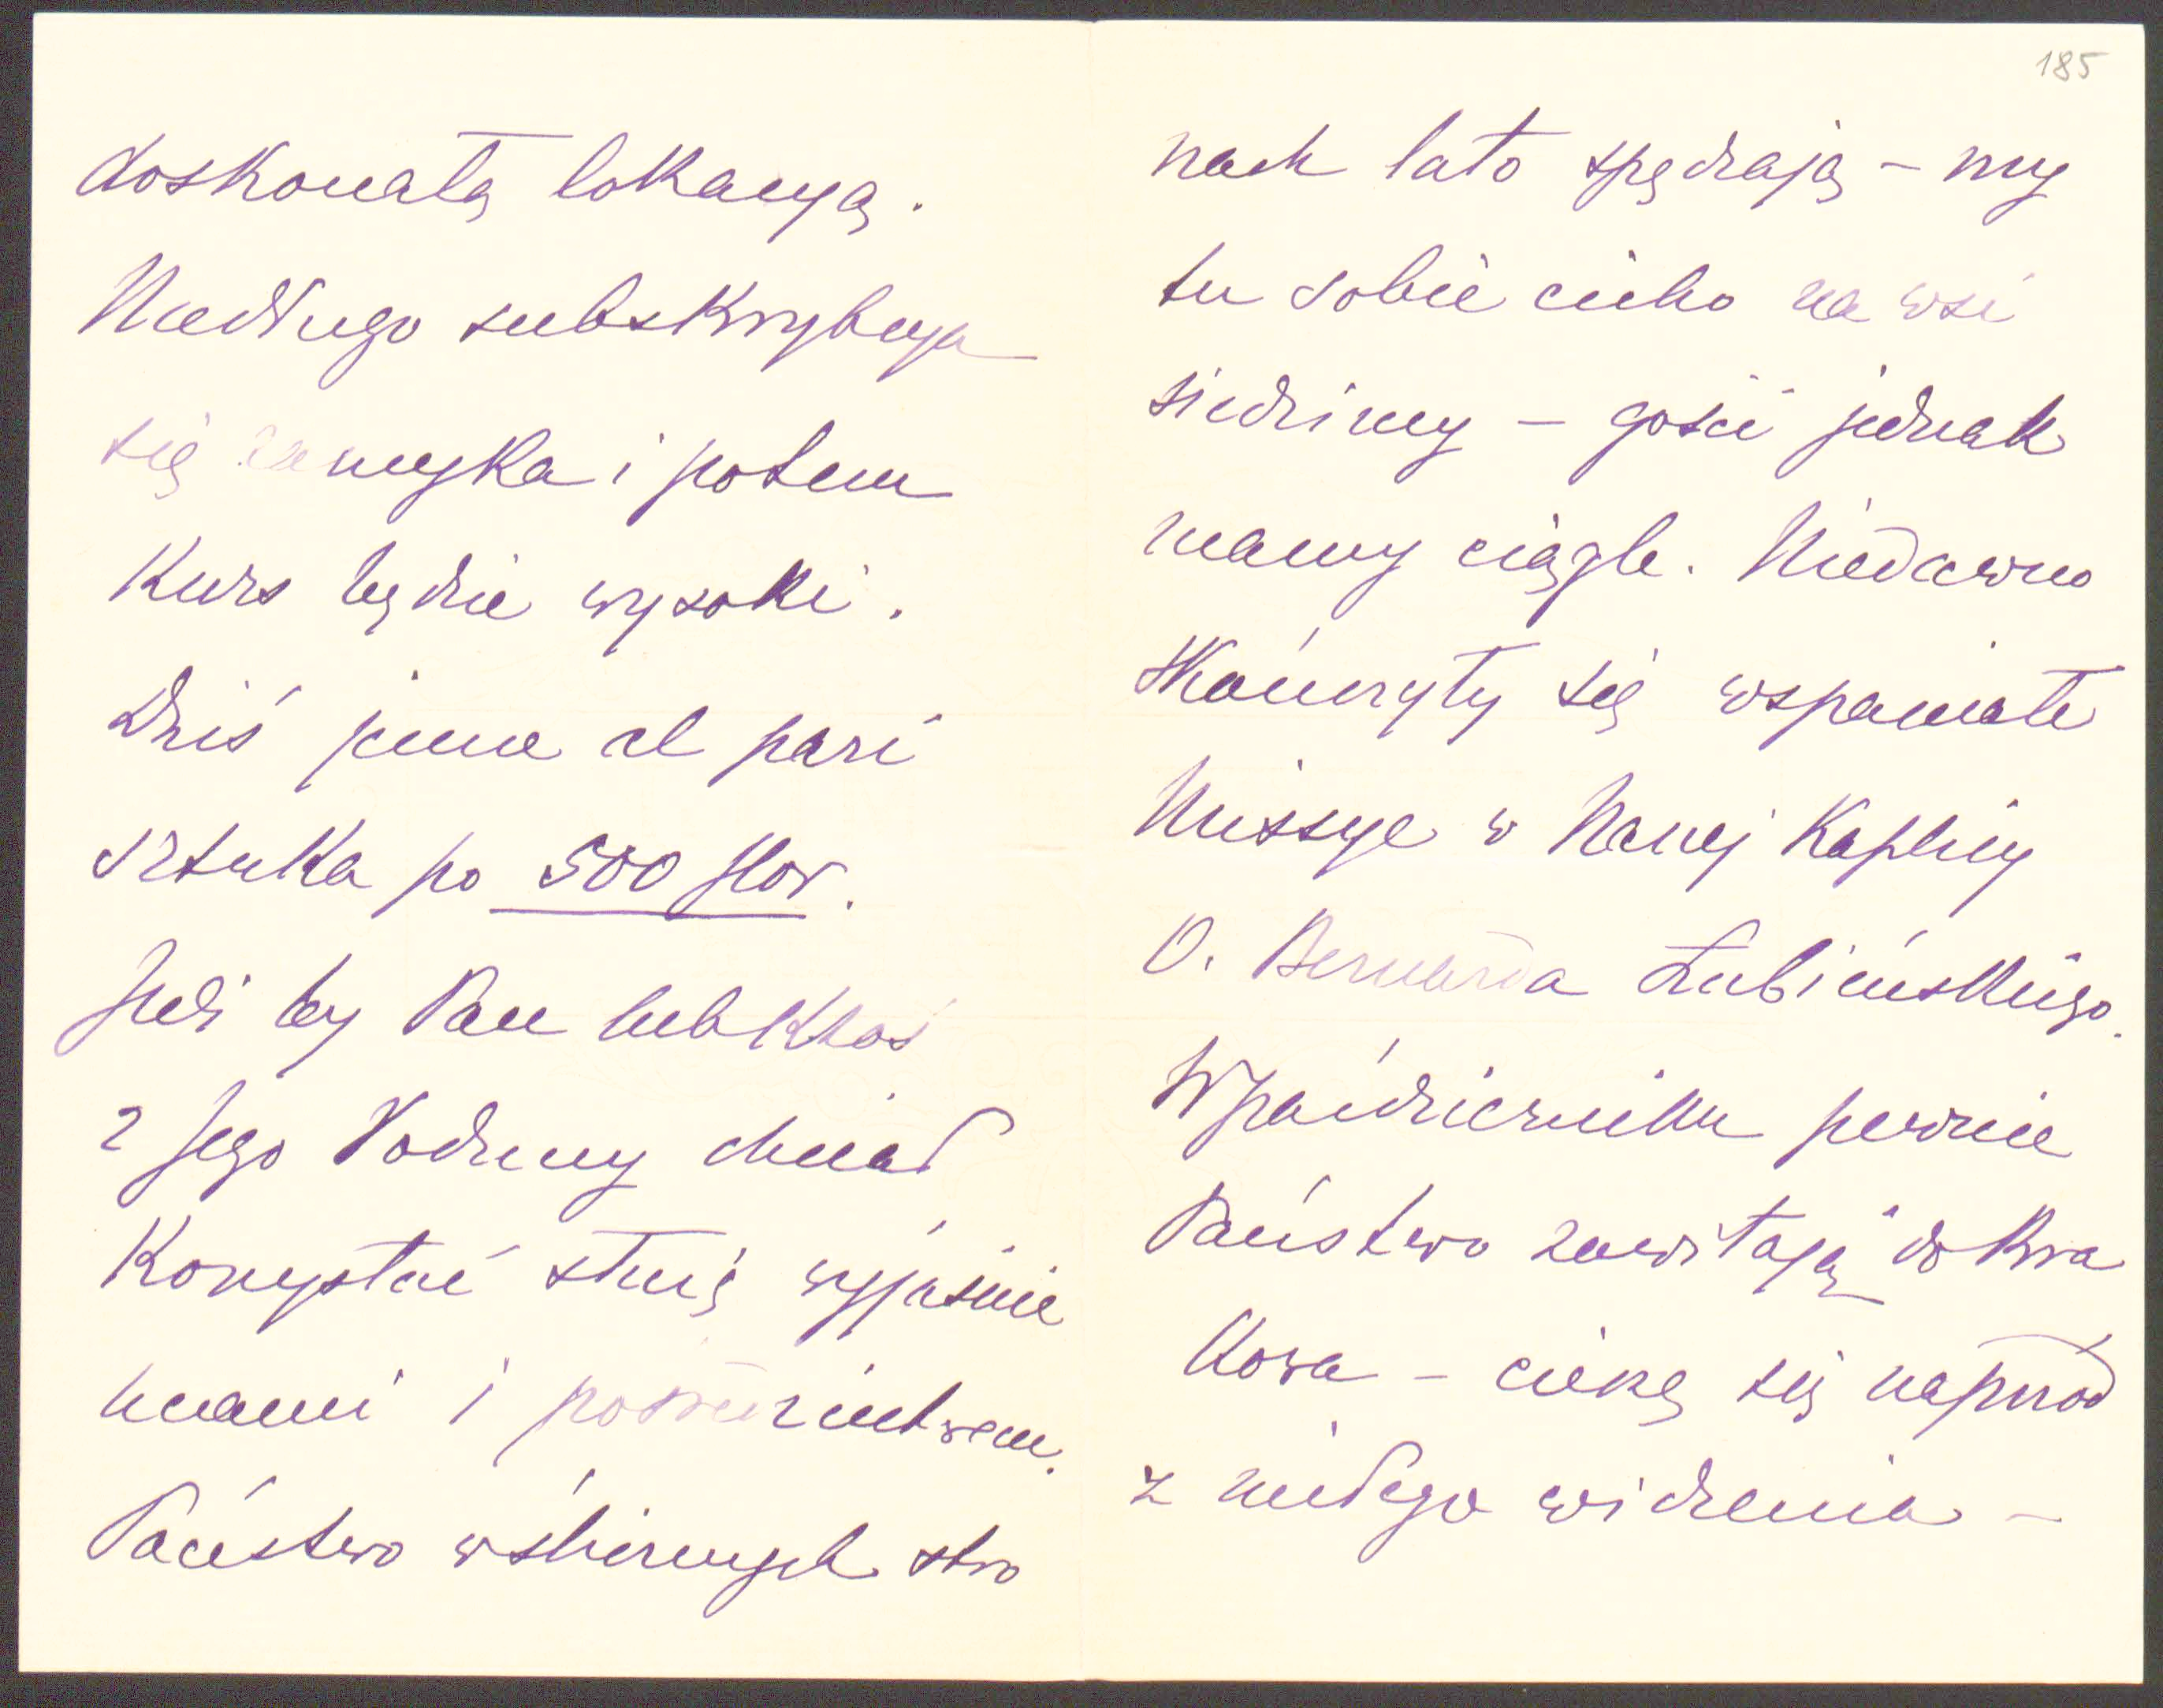 doskonałą lokacyą.
Niedługo subskrybcya
się zamyka i potem
Kurs będzie wysoki.
Dziś jeszcze al pari
sztuka po 500 flor.
Jeśli by Pan lub Ktoś
z Jego Rodziny chciał
Korzystać służę wyjaśnie
niami i pośrednictwem.
Państwo w ślicznych stro
185
nach lato spędzają – my
tu sobie cicho na wsi
siedzimy – gości jednak
mamy ciągle. Niedawno
skończyły się wspaniałe
Missye w Naszej Kaplicy
O. Bernarda Łubieńskiego.
W październiku pewnie
Państwo zawitają do Kra
Kowa – cieszę się naprzód
z miłego widzenia –